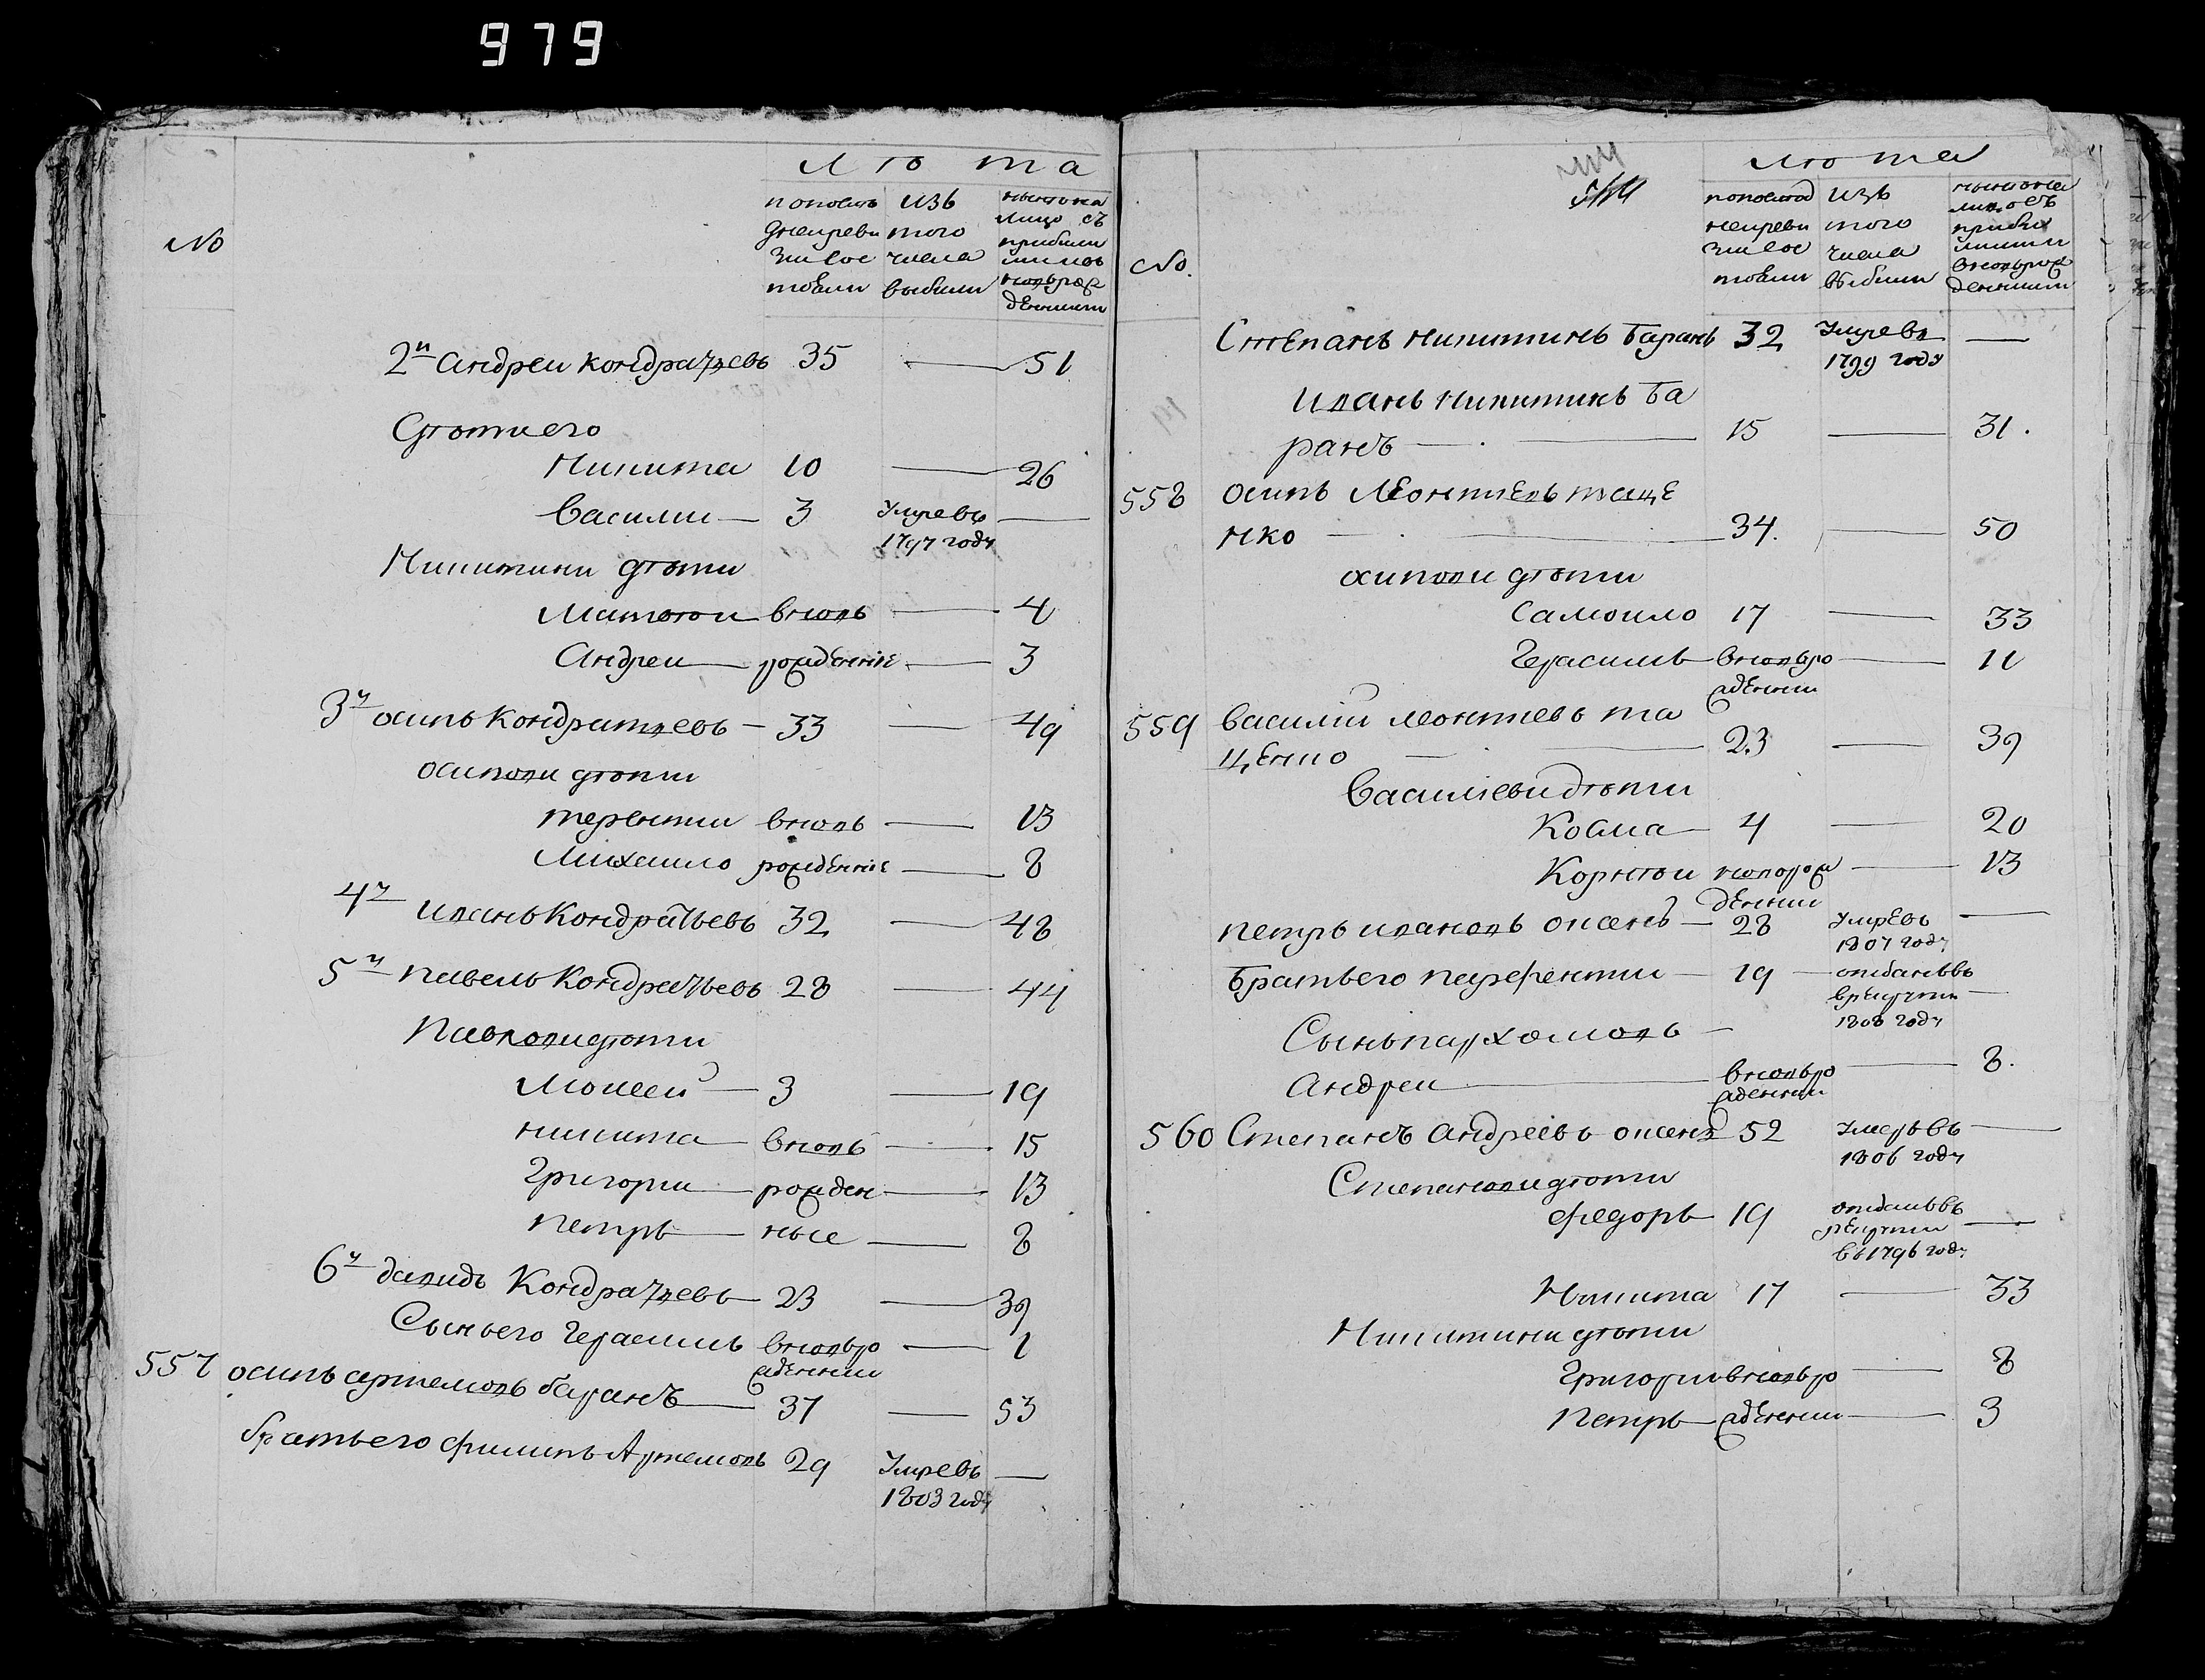 979
Лѣта
№
по последней ревизіи состояли
изъ того числа выбыли
ныне на лицо съ прибылыми и вновь рожденными
2й Андреи Кондратьевъ 35 — 51
Дѣти его
Никита 10 — 26
Василии — 3 Умре въ —
1797 году
Никитини дѣти
Матвѣи вновь — 4
Андреи рожденніе — 3
3й Осипъ Кондратьевъ — 33 — 49
Осипови дѣти
Терентии вновь — 13
Михаило рожденніе — 8
4й Иванъ Кондратьевъ 32 — 48
5й Павелъ Кондратьевъ 28 — 44
Павлови дѣти
Моисей — 3 — 19
Никита — вновь — 15
Григори — рожден — 13
Петръ — ные — 8
6й Давидъ Кондратьевъ — 23 — 39
Сынъ его Герасимъ вновь ро — 1
жденнии
557 Осипъ Артемовъ Баранъ — 37 — 53
Братъ его Филипъ Артемовъ 29 Умре въ —
1803 году
Лѣта
№.
по последней ревизіи состояли
изъ того числа выбыли
ныне на лицо съ прибылыми и вновь рожденными
Степанъ Никитинъ Баранъ 32 Умре въ —
1799 году
Иванъ Никитинъ Ба
ранъ — 15 — 31.
558 Осипъ Леонтиевъ Таце
нко — 34. — 50
Осипови дѣти
Самоило 17 — 33
Герасимъ вновь ро — 11
жденнии
559 Василий Леонтиевъ Та
ценко — 23 — 39
Василиеви дѣти
Косма — 4 — 20
Корнѣи новорож — 13
деннии
Петръ Ивановъ — 28 Умре въ —
1807 году
Братъ его Парфентии — 19 — отданъ въ
врекрути —
1808 году
Сынъ Пархомовъ —
Андреи — вновь ро — 8.
жденнии
560 Степанъ Андреевъ 52 Умеръ въ —
1806 году
Степанови дѣти
Федоръ 19 отдан въ
рекрути —
въ 1796 году
Никита 17 — 33
Никитини дѣти
Григори вновь ро — 8
Петръ — жденнии — 3